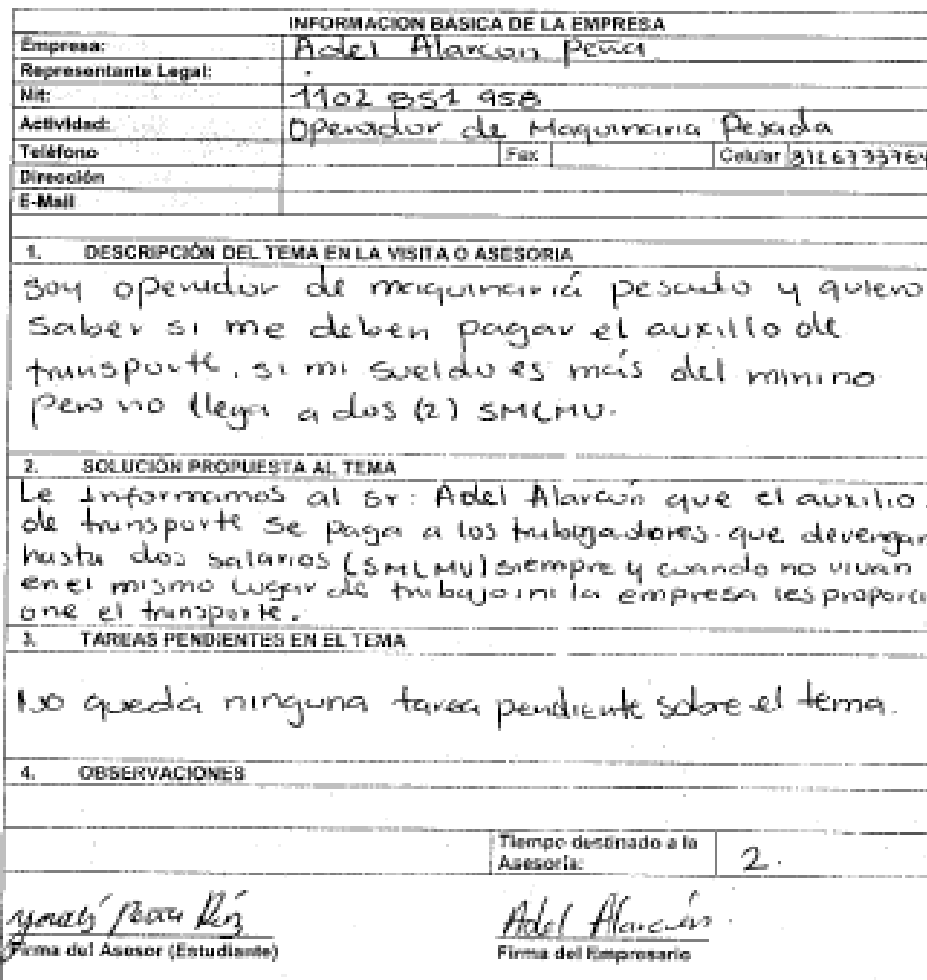 INFORMACION BÁSICA DE LA EMPRESA
Empresa: Adel Alarcon Peña
Representante Legal:
Nit: 1102 851 958
Actividad: Operador de Maquinaria Pesada
Teléfono Fax Celular 3126733764
Dirección
E-Mail
1. DESCRIPCIÓN DEL TEMA EN LA VISITA O ASESORIA
Soy operador de maquinaria pesado y quiero
Saber si me deben pagar el auxilio de
transporte, si mi sueldo es más del minino
pero no llega a dos (2) SMLMV.
2. SOLUCIÓN PROPUESTA AL TEMA
Le Informamos al Sr: Adel Alarcón que el auxilio
de transporte se paga a los trabajadores que devengan
hasta dos salarios (SMLMV) siempre y cuando no vivan
en el mismo lugar de trabajo, ni la empresa les proporci
one el transporte.
3. TAREAS PENDIENTES EN EL TEMA
No queda ninguna tarea pendiente sobre el tema.
4. OBSERVACIONES
Tiempo destinado a la
Asesoría: 2.
Adel Alarcón.
Firma del Asesor (Estudiante) Firma del Empresario